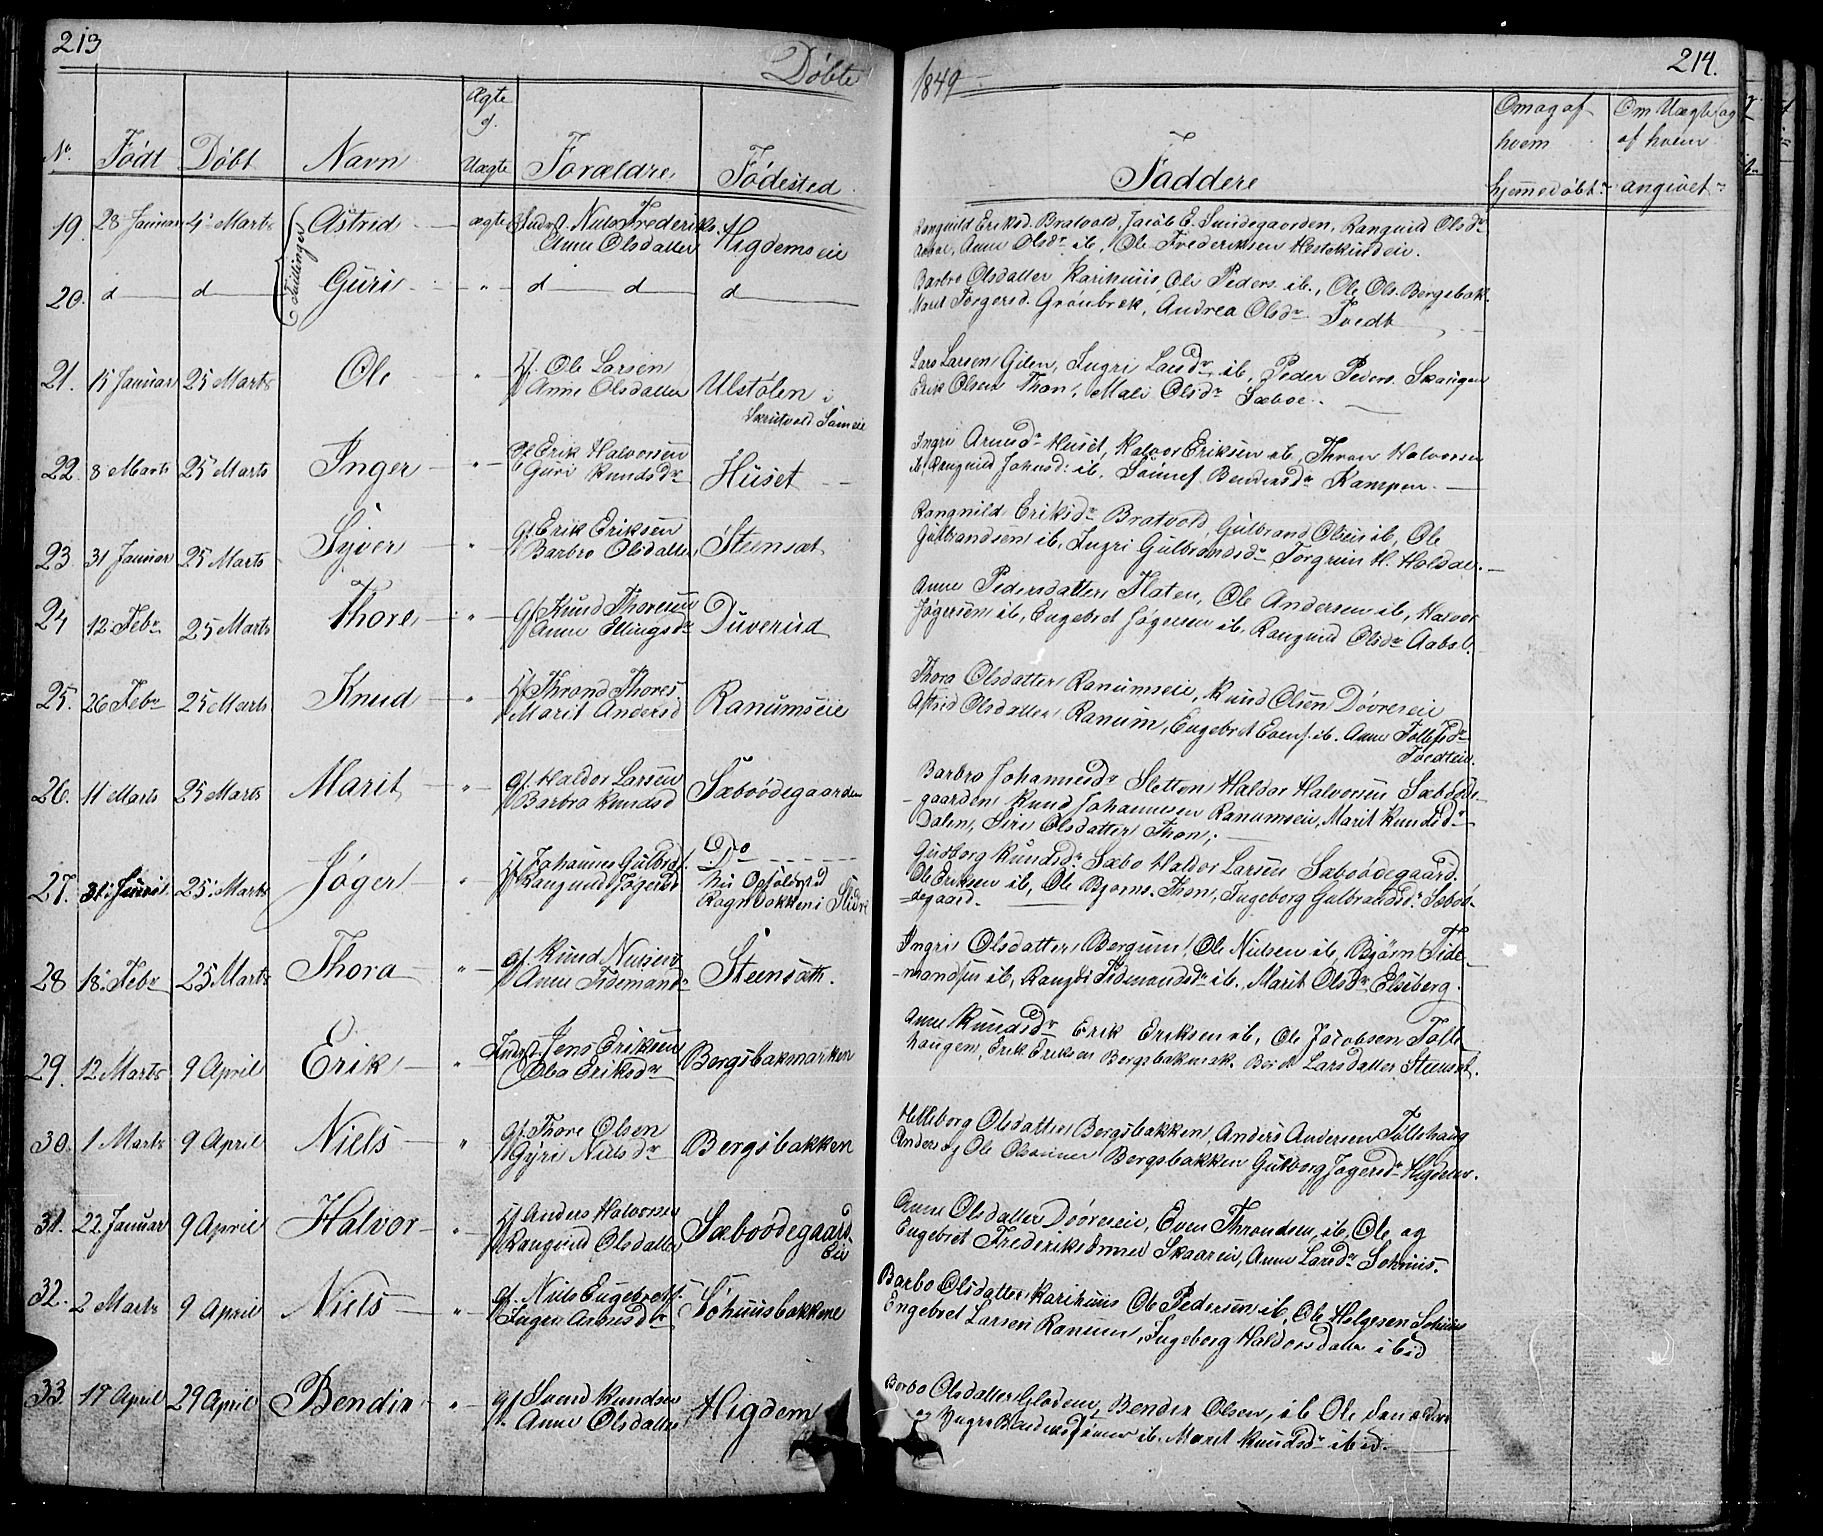 213
Døbte
1849
214.
No. Født Døbt Navn Ægte Uægte Forældre Fødested
Faddere
Om og af hvem hjemmedøbt
Om Uægte og af hvem angivet
19. 28 Januar 4 Marts Astrid ægte Niels Frederiks. Higdemseie
Anne Olsdatter
Rangnild Eriksd. Bratvold, Jacob E. Rangnild Olsdr
Anne Olsdr ib, Ole Frederiksen
Tvillinger
20. d d Guri " d d d
Barbro Olsdatter Karihuus Ole Peders. ib., Ole Ols. Bergsbak.
Marit Torgersd. Grønbrek, Andrea Olsdr Tvedt
21. 15 Januar 25 Marts Ole " Ole Larsen
Anne Olsdatter Ulstølen i
Lars Larsen Gilen, Ingri Larsdr ib, Peder Peders. Skaugen
Erik Olsen Thon, Mali Olsdr Sæboe.
22. 8 Marts 25 Marts Inger " Erik Halvorsen
Guri Knudsdr Huset
Ingri Arnesdr Huset, Halvor Eriksen ib, Thron Halvorsen
ib, Rangnild Johnsd: ib. Bendiksdr Kampen.
23. 31 Januar 25 Marts Syver " Gf Erik Eriksen
Barbro Olsdatter Steensæt
Rangnild Eriksdr Bratvold, Gulbrand Olsen ib, Ole
Gulbrandsen ib, Ingri Gulbrandsdr Torgrim H.
24 12 Febr 25 Marts Thore " Gf Knud Thoresen
Anne Ellingsdr Duverud
Anne Pedersdatter Flaten, Ole Andersen ib, Halvor
Jøgersen ib, Engebret Jøgersen ib, Rangnild Olsdr
25. 26 Febr 25 Marts Knud " Thrond Thores.
Marit Andersd Ranumseie
Thora Olsdatter Ranumseie, Knud Olsen Døvreseie
Astrid Olsdatter Ranum, Engebret Evens. ib. Anne Tollefsdr
Tvedteie.
26. 11 Marts 25 Marts Marit " Gf. Haldor Larsen
Barbra Knudsd Sæboødegaarden
Barbro Johannesdr Sletten Haldor Halvorsen Sæboøde-
gaarden, Knud Johannesen Ranumseie, Marit Knudsdr
Dalen, Siri Olsdatter Thon;
27. 25 Marts Jøger " Johannes Gulbrds. Do
Rangnild Jøgersd
Slidre
Gudborg Knudsdr Sæbo Haldor Larsen Sæboødegaard.
Ole Eriksen ib, Ole Bjørns. Thon, Ingeborg Gulbrandsdr Sæboø-
degaard.
28 18 Febr 25 Marts Thora " Gf. Knud Nielsen
Anne Tidemandsdr Steensæth.
Ingri Olsdatter Bergum, Ole Nielsen ib, Bjørn Tide-
mandsen ib, Tidemandsdr ib., Marit Olsdr Elsiberg.
29. 12 Marts 9 April Erik " Jens Eriksen
Eba Eriksdr Bergsbakmarken
Anne Knudsdr Erik Eriksen ib, Ole Jacobsen Tolle-
haugen, Erik Eriksen Bergsbakmark. Larsdatter Steensæt.
30. 1 Marts 9 April Niels " Gf. Thore Olsen
Gyri Nielsdr Bergsbakken
Helleborg Olsdatter Bergsbakken, Anders Andersen Tollehaug
Anders og Ole Olssønner Bergsbakken Gulborg Jøgersdr Higdem.
31. 22 Januar 9 April Halvor " Anders Halvorsen
Rangnild Olsdatter Sæboødegaard.
Eie
Anne Olsdatter Døvreseie, Even Throndsen ib, Ole og
Engebret Frederikssønner Skaareie, Anne Larsdr Sohuus.
32. 2 Marts 9 April Niels " Gf. Niels Engebrets.
Ingri Arnesdr Sohuusbakkene
Barbo Olsdatter Karihuus Ole Pedersen ib, Ole Helgesen Sohuus
Engebret Larsen Ranum, Ingeborg Haldorsdatter ibid
33. 17 April 29 April Bendix " Gf Svend Knudsen
Anne Olsdatter Higdem
Barbo Olsdatter Bendix Olsen, ib Ole den ældre
og Yngre Bendixssønner ib. Marit Knudsdr ibid.